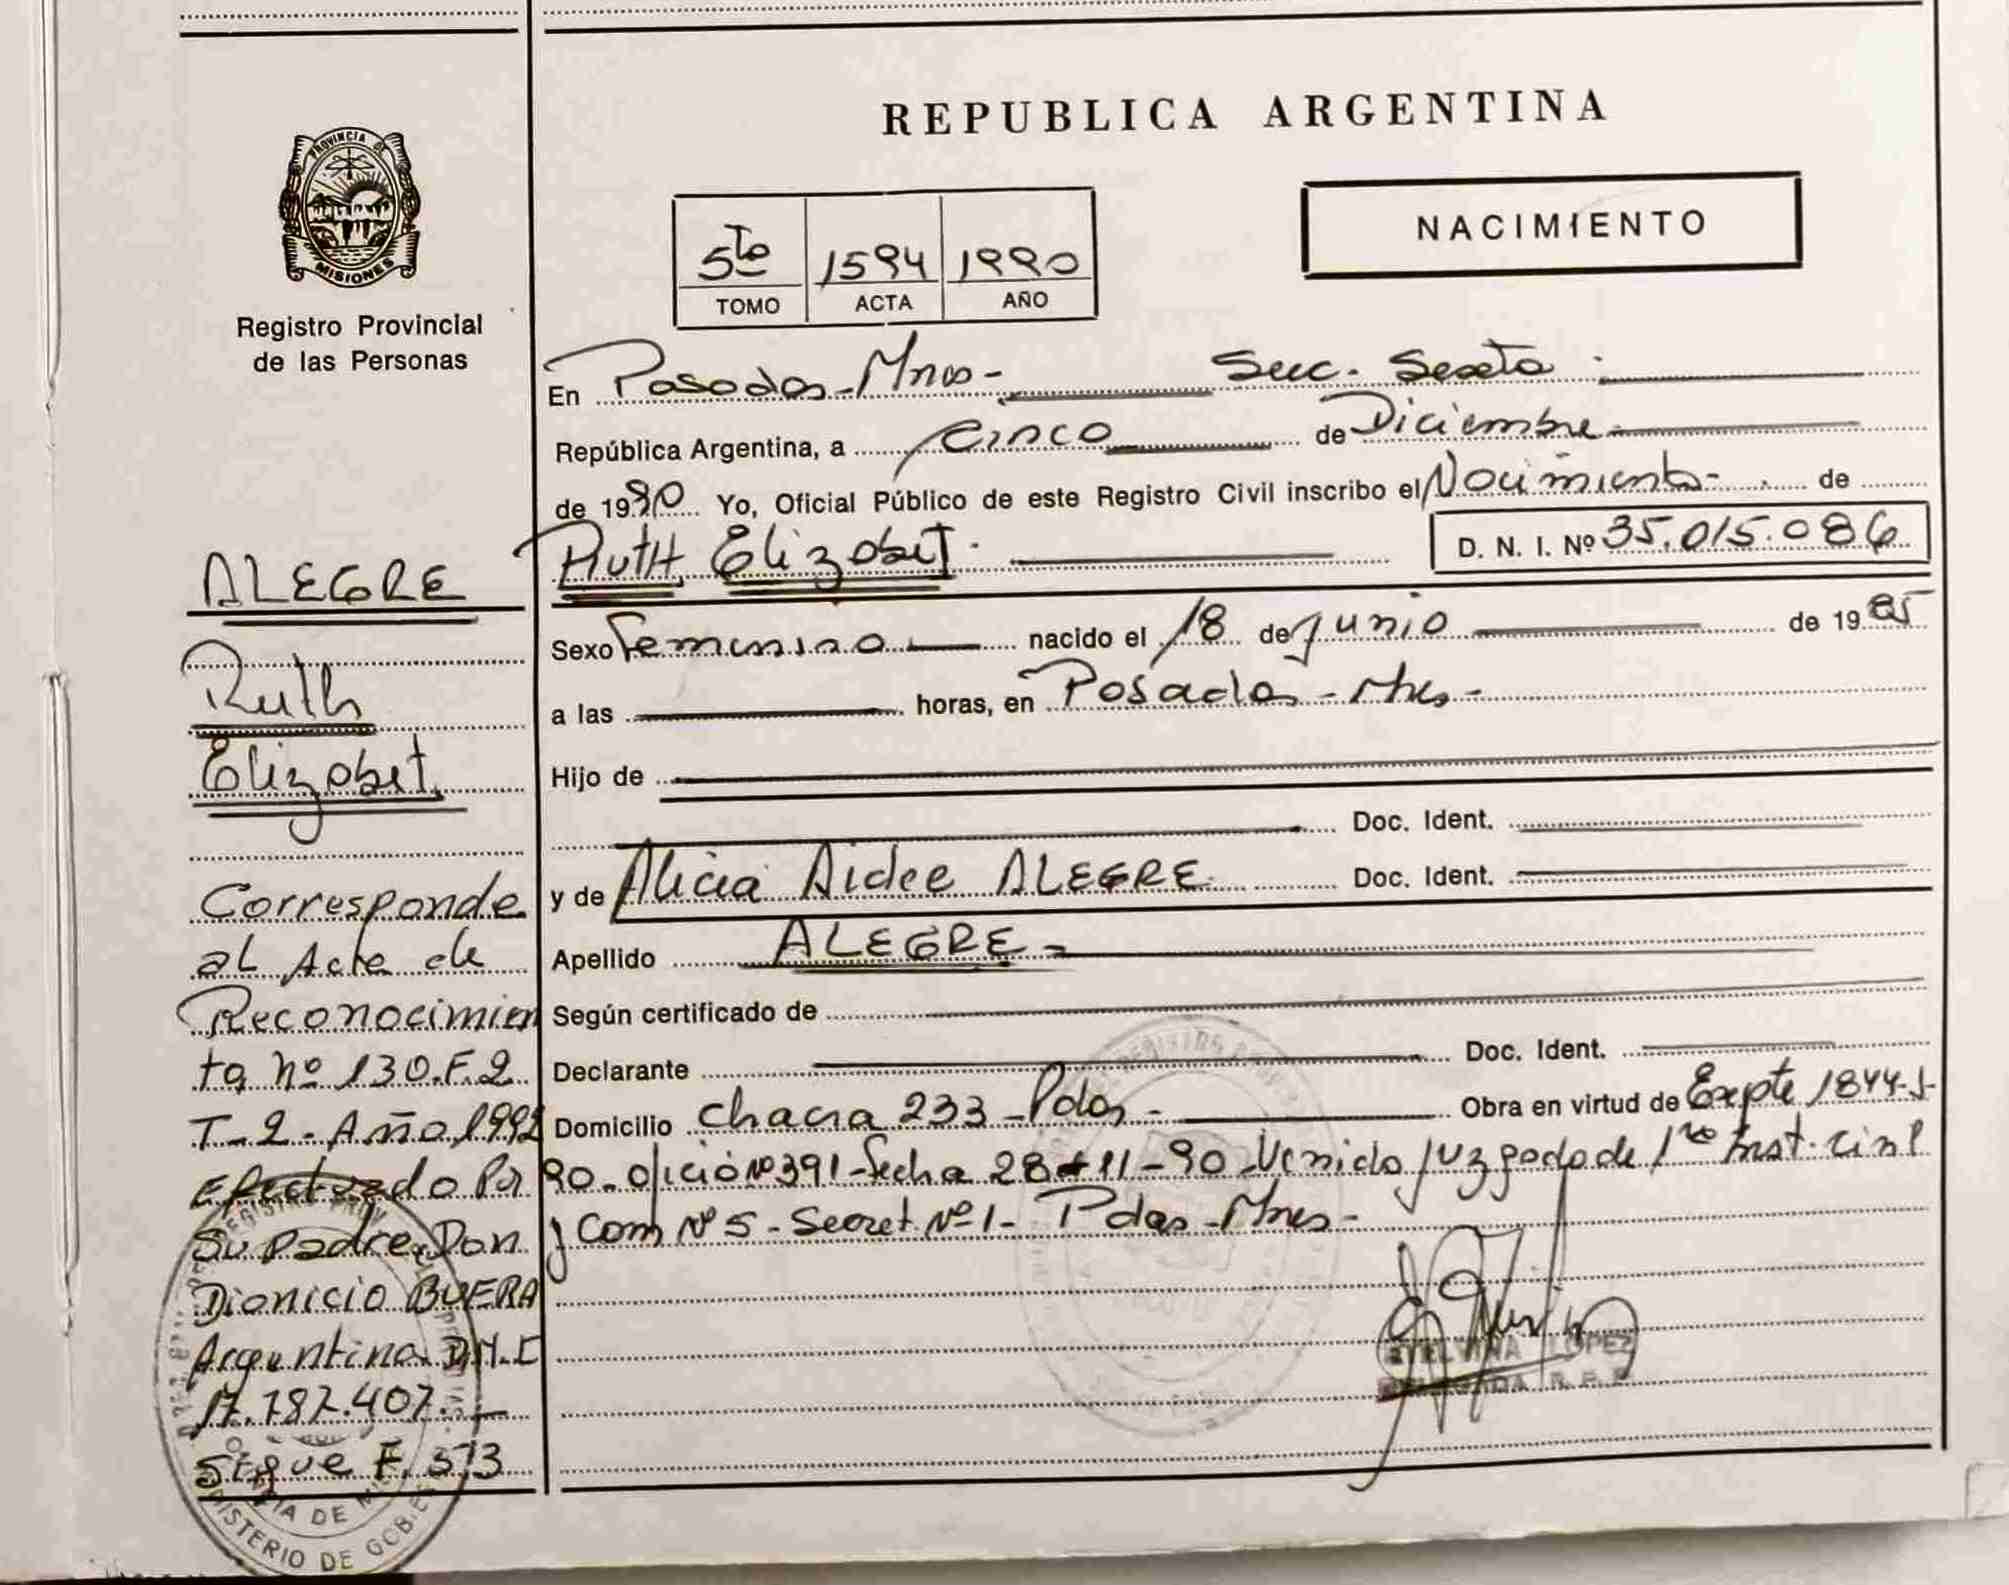 PROVINCIA DE
MISIONES
Registro Provincial
de las Personas
REPUBLICA ARGENTINA
NACIMIENTO
5to 1594 1990
TOMO ACTA AÑO
En Posadas - Mnes - Secc. Sexta
República Argentina, a Cinco de Diciembre
de 1990 Yo, Oficial Público de este Registro Civil inscribo el Nacimiento de
Ruth Elizabet D. N. I. Nº 35.015.086
Sexo Femenino nacido el 18 de Junio de 1985
a las horas, en Posadas - Mnes -
Hijo de
Doc. Ident.
y de Alicia Aidee ALEGRE Doc. Ident.
Apellido ALEGRE
Según certificado de
Declarante Doc. Ident.
Domicilio Chacra 233 - Pdas - Obra en virtud de Expte 1844-
90 - Oficio Nº 391 - Fecha 28-11-90 - Venido Juzgado de 1ra Inst. Civil
y Com Nº 5 - Secret. Nº 1 - Pdas - Mnes -
LOPEZ
ALEGRE
Ruth
Elizabet
Corresponde
al Acta de
Reconocimien
to Nº 130.F.2
T-2-Año 1992
Efectuado Por
Su padre Don
Dionicio BUERA
Argentino D.N.I
17.787.407.
Sigue F. 373
MINISTERIO DE GOBIE